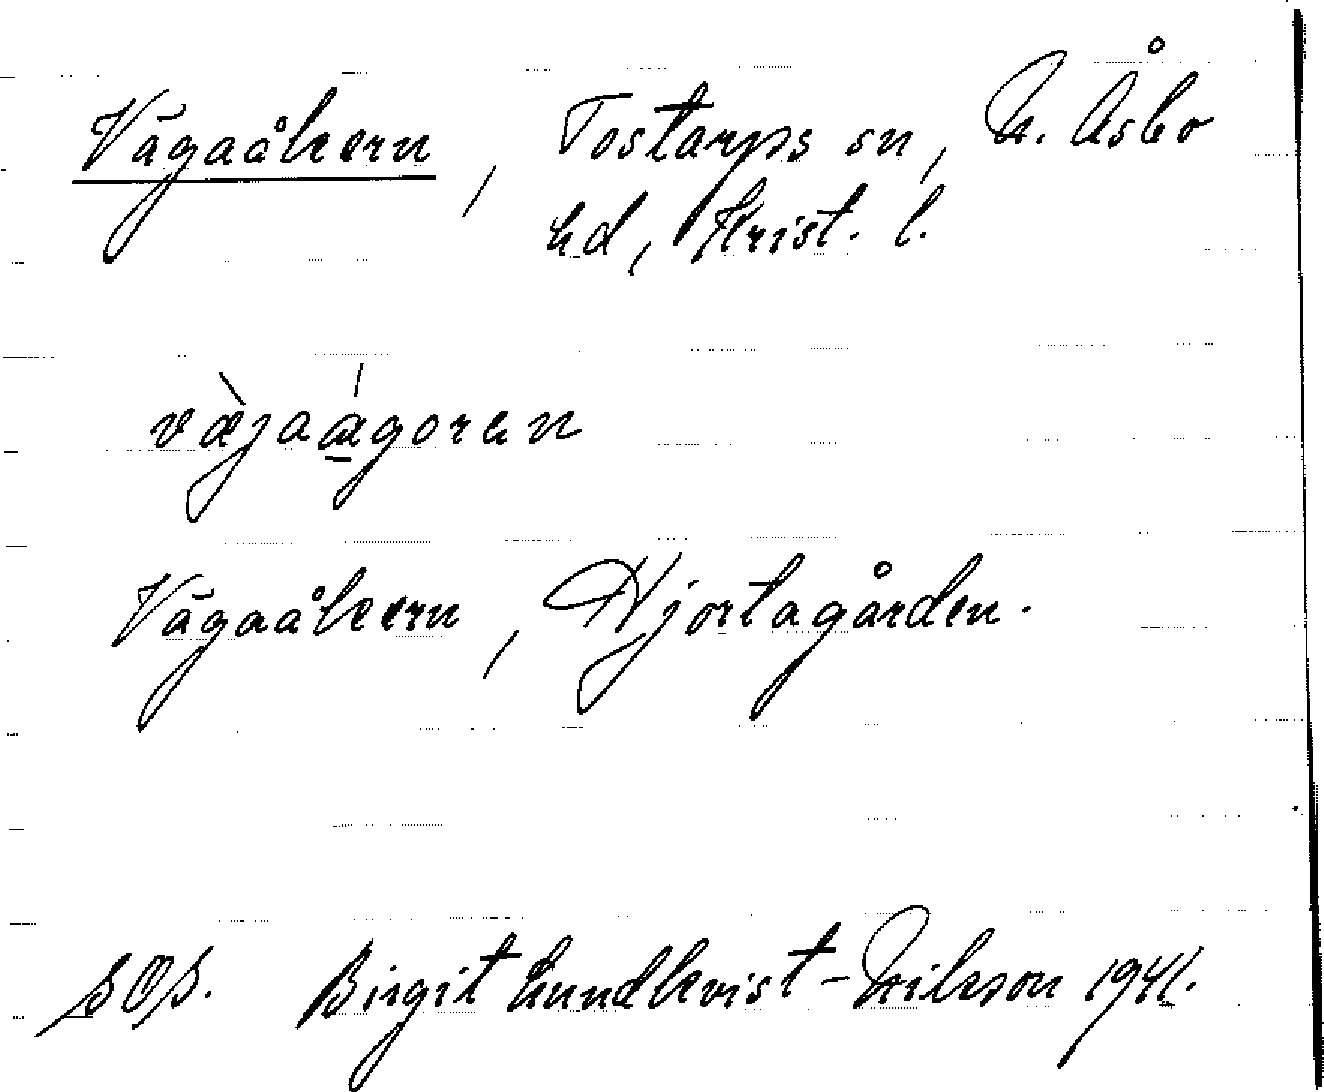 Vägaåkern, Tostarps sn, N. Åsbo
hd, Krist. l.
vä̀jaágoren
Vägaåkern, Hjortagården.
SOS. Birgit Lundkvist-Nilsson 1941.